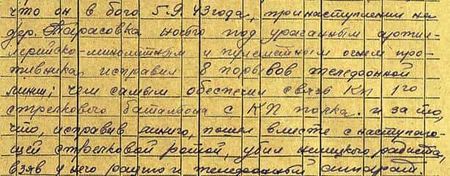 что он в бою 5.9.43 года, при наступлении на
дер. Тарасовка ночью под ураганным артил-
лерийско-минометным и пулеметным огнем про-
тивника исправил 8 порывов телефонной
линии; чем самым обеспечил связь КП 1го
стрелкового баталиона с КП полка. и за то,
что, исправив линию, пошел вместе с наступаю-
щей стрелковой ротой, убил немецкого радиста,
взяв у него рацию и телефонный аппарат.